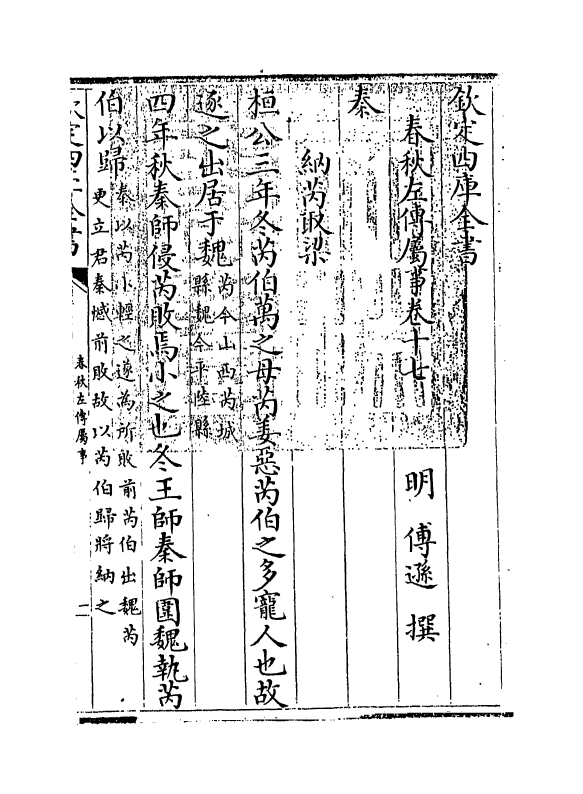 欽定四庫全書
春秋左傳屬事卷十七
明 傅遜 撰
秦
納芮取梁
桓公三年冬芮伯萬之母芮姜惡芮伯之多寵人也故
逐之出居于魏芮今山西芮城縣魏今平陸縣
四年秋秦師侵芮敗焉小之也冬王師秦師圍魏執芮
伯以歸秦以芮小輕之遂為所敗前芮伯出魏芮更立君秦憾前敗故以芮伯歸將納之
欽定四庫全書
春秋左傳屬事